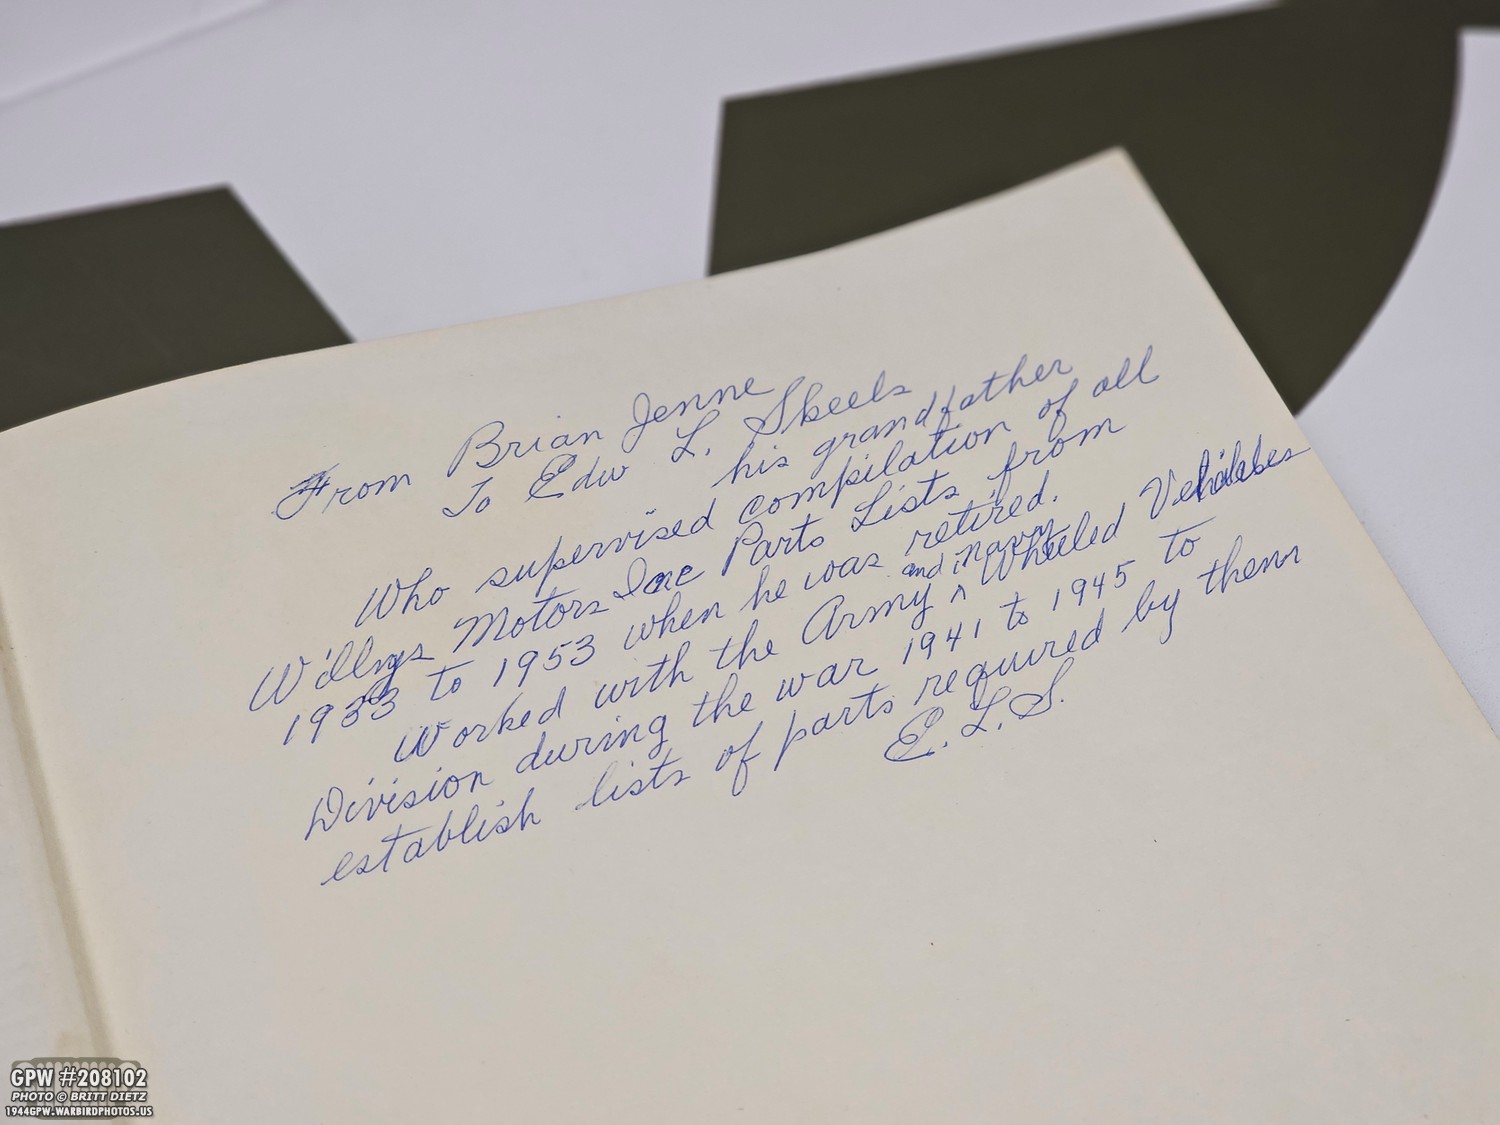 From Brian Jenne
To Edw L. Skeels
his grandfather
Who supervised compilation of all
Willys Motors Inc Parts Lists from
1933 to 1953 when he was retired.
Worked with the Army and navy Wheeled Vehicles
Division during the war 1941 to 1945 to
establish lists of parts required by them
E. L. S.
GPW #208102
PHOTO © BRITT DIETZ
1944GPW.WARBIRDPHOTOS.US